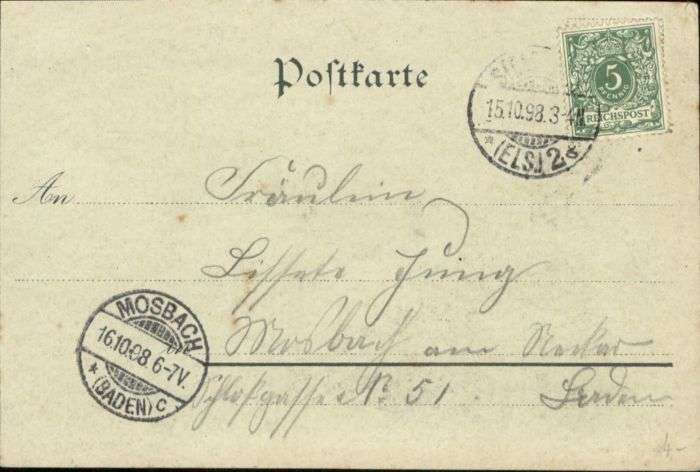 Postkarte
5
REICHSPOST
15.10.98.3-4N
* (ELS.) 2 d
An Fräulein
Lissete Jung
in Mosbach am Neckar
Schloßgasse No 51. Baden
MOSBACH
16.10.98.6-7V.
* (BADEN) c
4-